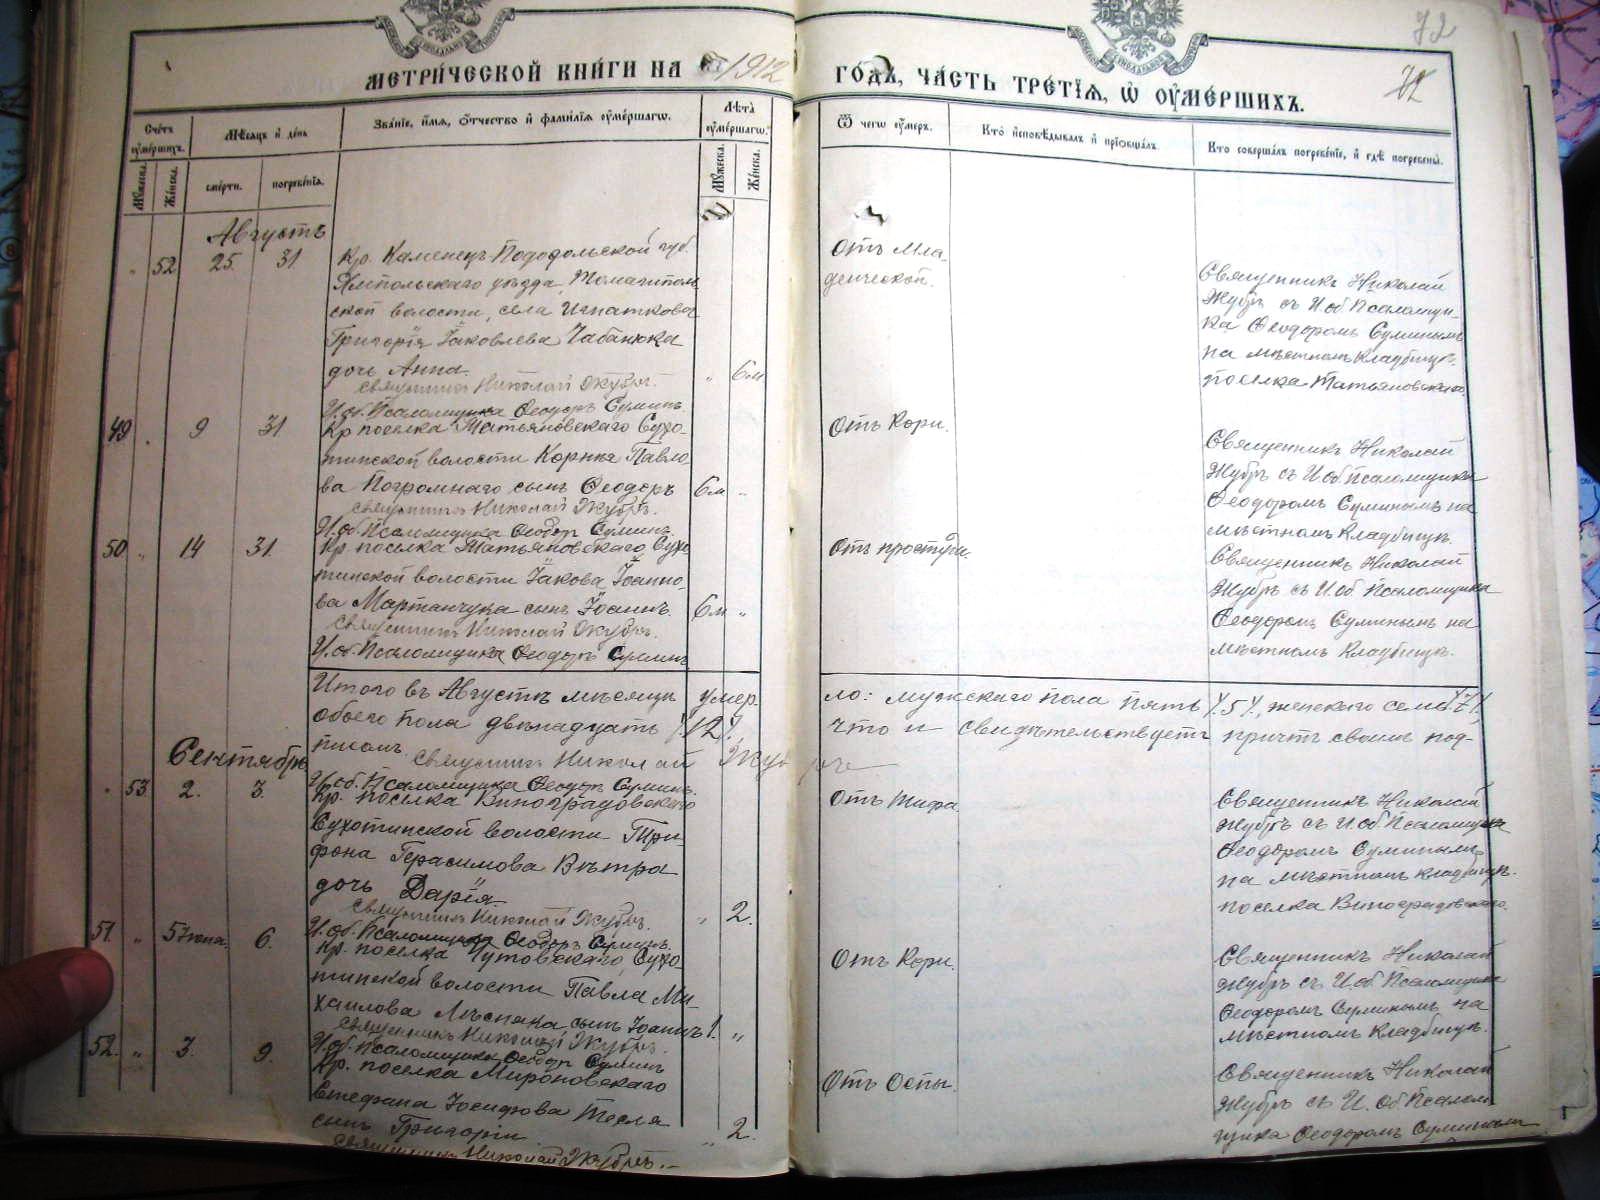 72
МЕТРИ́ЧЕСКОЙ КНИ́ГИ НА 1912
ГО́ДЪ, ЧА́СТЬ ТРЕ́ТІЯ, Ѡ ОУМЕ́РШИХЪ.
72
Сче́тъ оуме́ршихъ.
Мѣсяцъ и день
Зва́ніе, и́мя, ѻтчество и фами́лія оуме́ршагѡ.
Лѣта̀ оуме́ршагѡ.
Мꙋжеска.
Же́нска.
сме́рти.
погребе́нїѧ.
Мꙋжеска.
Же́нска.
Ѿ чегѡ оу́меръ.
Кто̀ исповѣ́дывалъ и прїѡбща́лъ.
Кто соверша́лъ погребе́нїе, и гдѣ̀ погребены̀.
Августъ
„ 52 25. 31.
Кр. Каменецъ-Подольской губ.
Ямпольскаго уѣзда, Томашполь
ской волости, села Игнаткова
Григорія Іаковлева Чабанюка
дочь Анна.
„ 6м
священникъ Николай Жубръ.
И. об. Псаломщика Ѳеодоръ Суминъ.
Отъ Мла-
денческой.
Священникъ Николай
Жубръ съ И. об. Псаломщи-
ка Ѳеодоромъ Суминымъ
на мѣстномъ кладбищѣ
поселка Татьяновскаго.
49 „ 9 31
Кр. поселка Татьяновскаго Сухо-
тинской волости Корнія Павло-
ва Погромнаго сынъ Ѳеодоръ
6м „
священникъ Николай Жубръ.
И. об. Псаломщика Ѳеодоръ Суминъ.
Отъ Кори.
Священникъ Николай
Жубръ съ И. об. Псаломщика
Ѳеодоромъ Суминымъ на
мѣстномъ кладбищѣ.
50. „ 14 31.
Кр. поселка Татьяновскаго, Сухо
тинской волости Іакова Іоанно-
ва Мартанчука сынъ Іоаннъ.
6м „
священникъ Николай Жубръ.
И. об. Псаломщика Ѳеодоръ Суминъ
Отъ простуды
Священникъ Николай
Жубръ съ И. об Псаломщика
Ѳеодоромъ Суминымъ на
мѣстномъ кладбищѣ.
Итого въ Августѣ мѣсяцѣ умер
ло: мужскаго пола пять /.5/., женскаго семь /.7/.,
обоего пола двѣнадцать /.12/.
Что и свидѣтельствуетъ причтъ своимъ под-
писомъ
священникъ Николай Жубръ
И. об. Псаломщика Ѳеодоръ Суминъ.
Сентябрь
„ 53 2. 3.
Кр. поселка Виноградовскаго
Сухотинской волости Три-
фона Герасимова Вѣтра
дочь Дарія.
„ 2.
священникъ Николай Жубръ.
И. об. Псаломщика Ѳеодоръ Суминъ.
Отъ Тифа.
Священникъ Николай
Жубръ съ И. об. Псаломщика
Ѳеодоромъ Суминымъ
на мѣстномъ кладбищѣ.
поселка Виноградовскаго.
51. „ 6.
Кр. поселка Чутовскаго, Сухо-
тинской волости Павла Ми-
хаилова сынъ Іоаннъ
1. „
священникъ Николай Жубръ.
И. об. Псаломщика Ѳеодоръ Суминъ
Отъ Кори.
Священникъ Николай
Жубръ съ И. об. Псаломщика
Ѳеодоромъ Суминымъ на
мѣстномъ кладбищѣ.
52. „ 3. 9.
Кр. поселка Мироновскаго
Стефана Іосифова Тесля
сынъ Григорій
„ 2.
священникъ Николай Жубръ.
Отъ Оспы.
Священникъ Николай
Жубръ съ И. об Псалом
щика Ѳеодоромъ Суминымъ